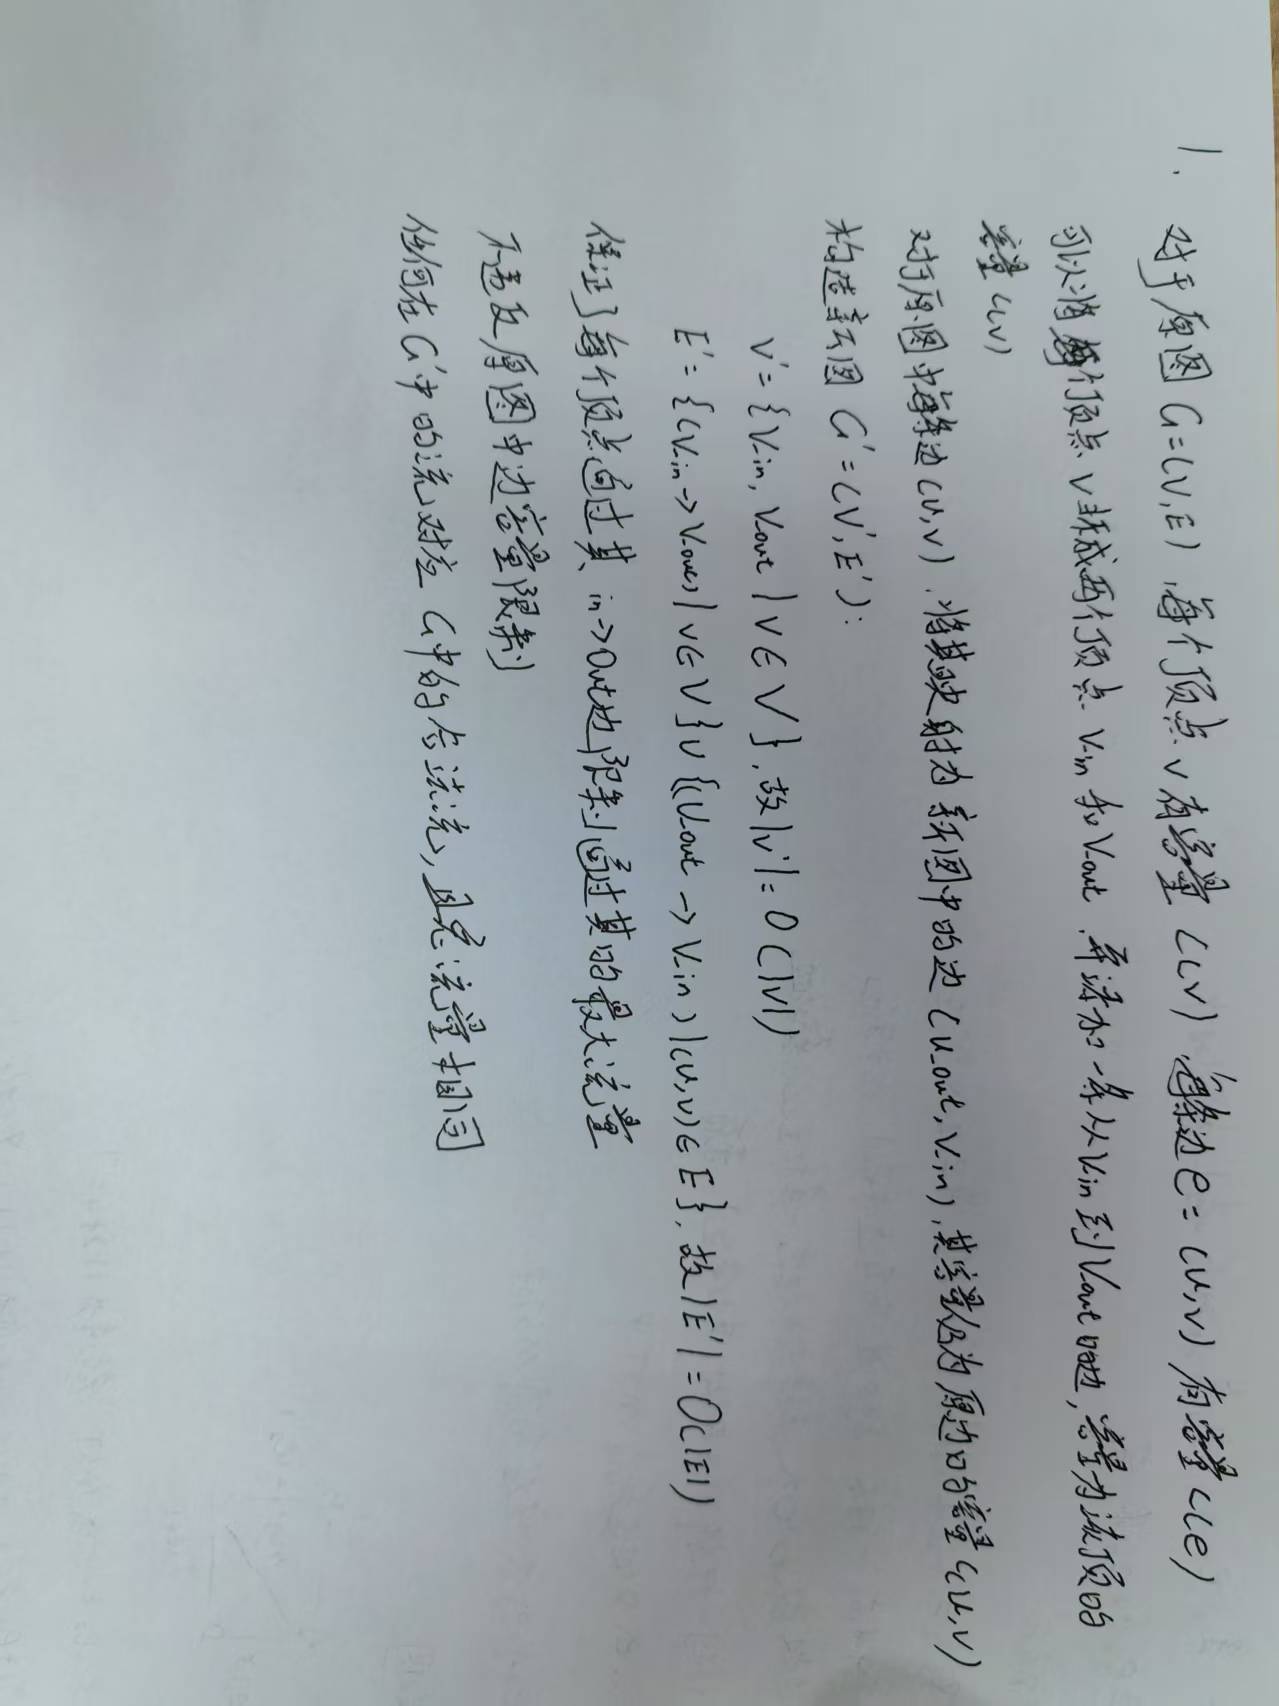 1. 对于原图 G=(V,E),每个顶点 v 有容量 c(v),每条边 e=(u,v) 有容量 c(e)
可以将每个顶点 v 拆成两个顶点 v_in 和 v_out,并添加一条从 v_in 到 v_out 的边,容量为该顶的
容量 c(v)
对于原图中每条边(u,v),将其映射为新图中的边(u_out, v_in),其容量仍为原边的容量 c(u,v)
构造新图 G'=(V',E'):
V'={v_in, v_out | v∈V},故|V'|=O(|V|)
E'={(v_in→v_out)|v∈V}∪{(u_out→v_in)|(u,v)∈E},故|E'|=O(|E|)
保证了每个顶点通过其 in→out边限制通过其的最大流量
不违反原图中边容量限制
任何在G'中的流对应G中的合法流,且总流量相同